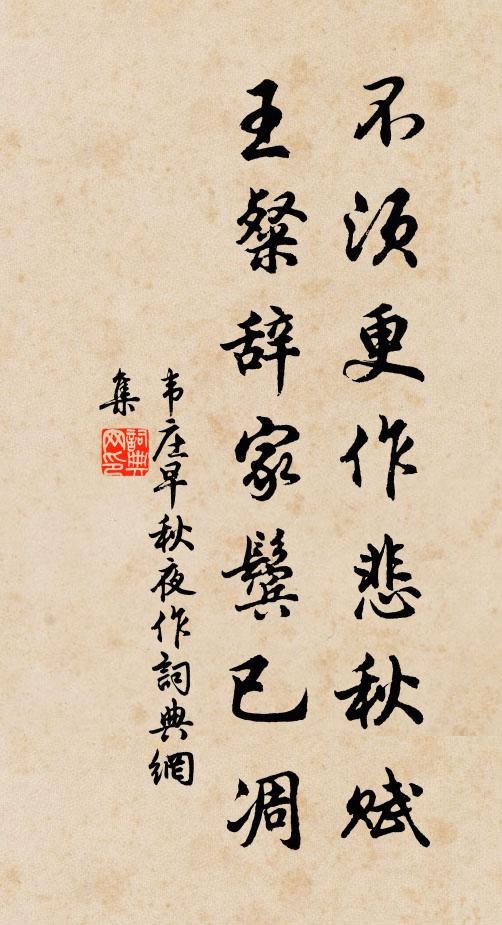 不须更作悲秋赋
王粲辞家鬓已凋
韦庄早秋夜作詞典網
集
詞典网印